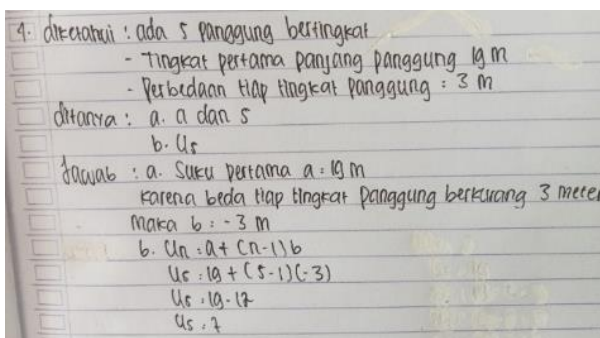 4. diketahui : ada 5 panggung bertingkat
- Tingkat pertama panjang panggung 19 m
- Perbedaan tiap tingkat panggung : 3 m
ditanya : a. a dan s
b. U5
Jawab : a. Suku pertama a = 19 m
Karena beda tiap tingkat panggung berkurang 3 meter
maka b = -3 m
b. Un = a + (n-1)b
U5 = 19 + (5-1)(-3)
U5 = 19 - 12
U5 = 7